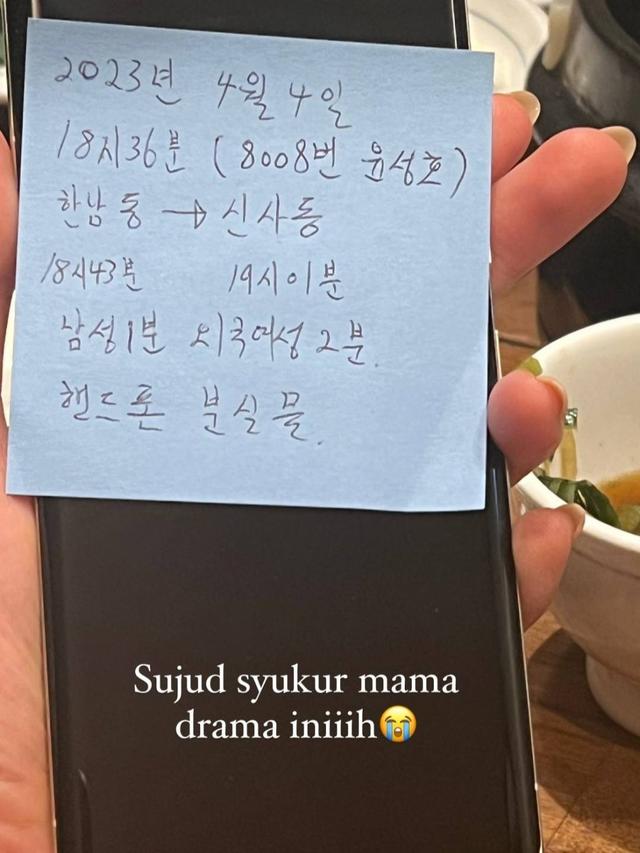 2023년 4월 4일
18시36분 (8008번 윤성호)
한남동 → 신사동
18시43분 19시01분
남성1분 외국여성 2분.
핸드폰 분실물.
Sujud syukur mama
drama iniiih😭